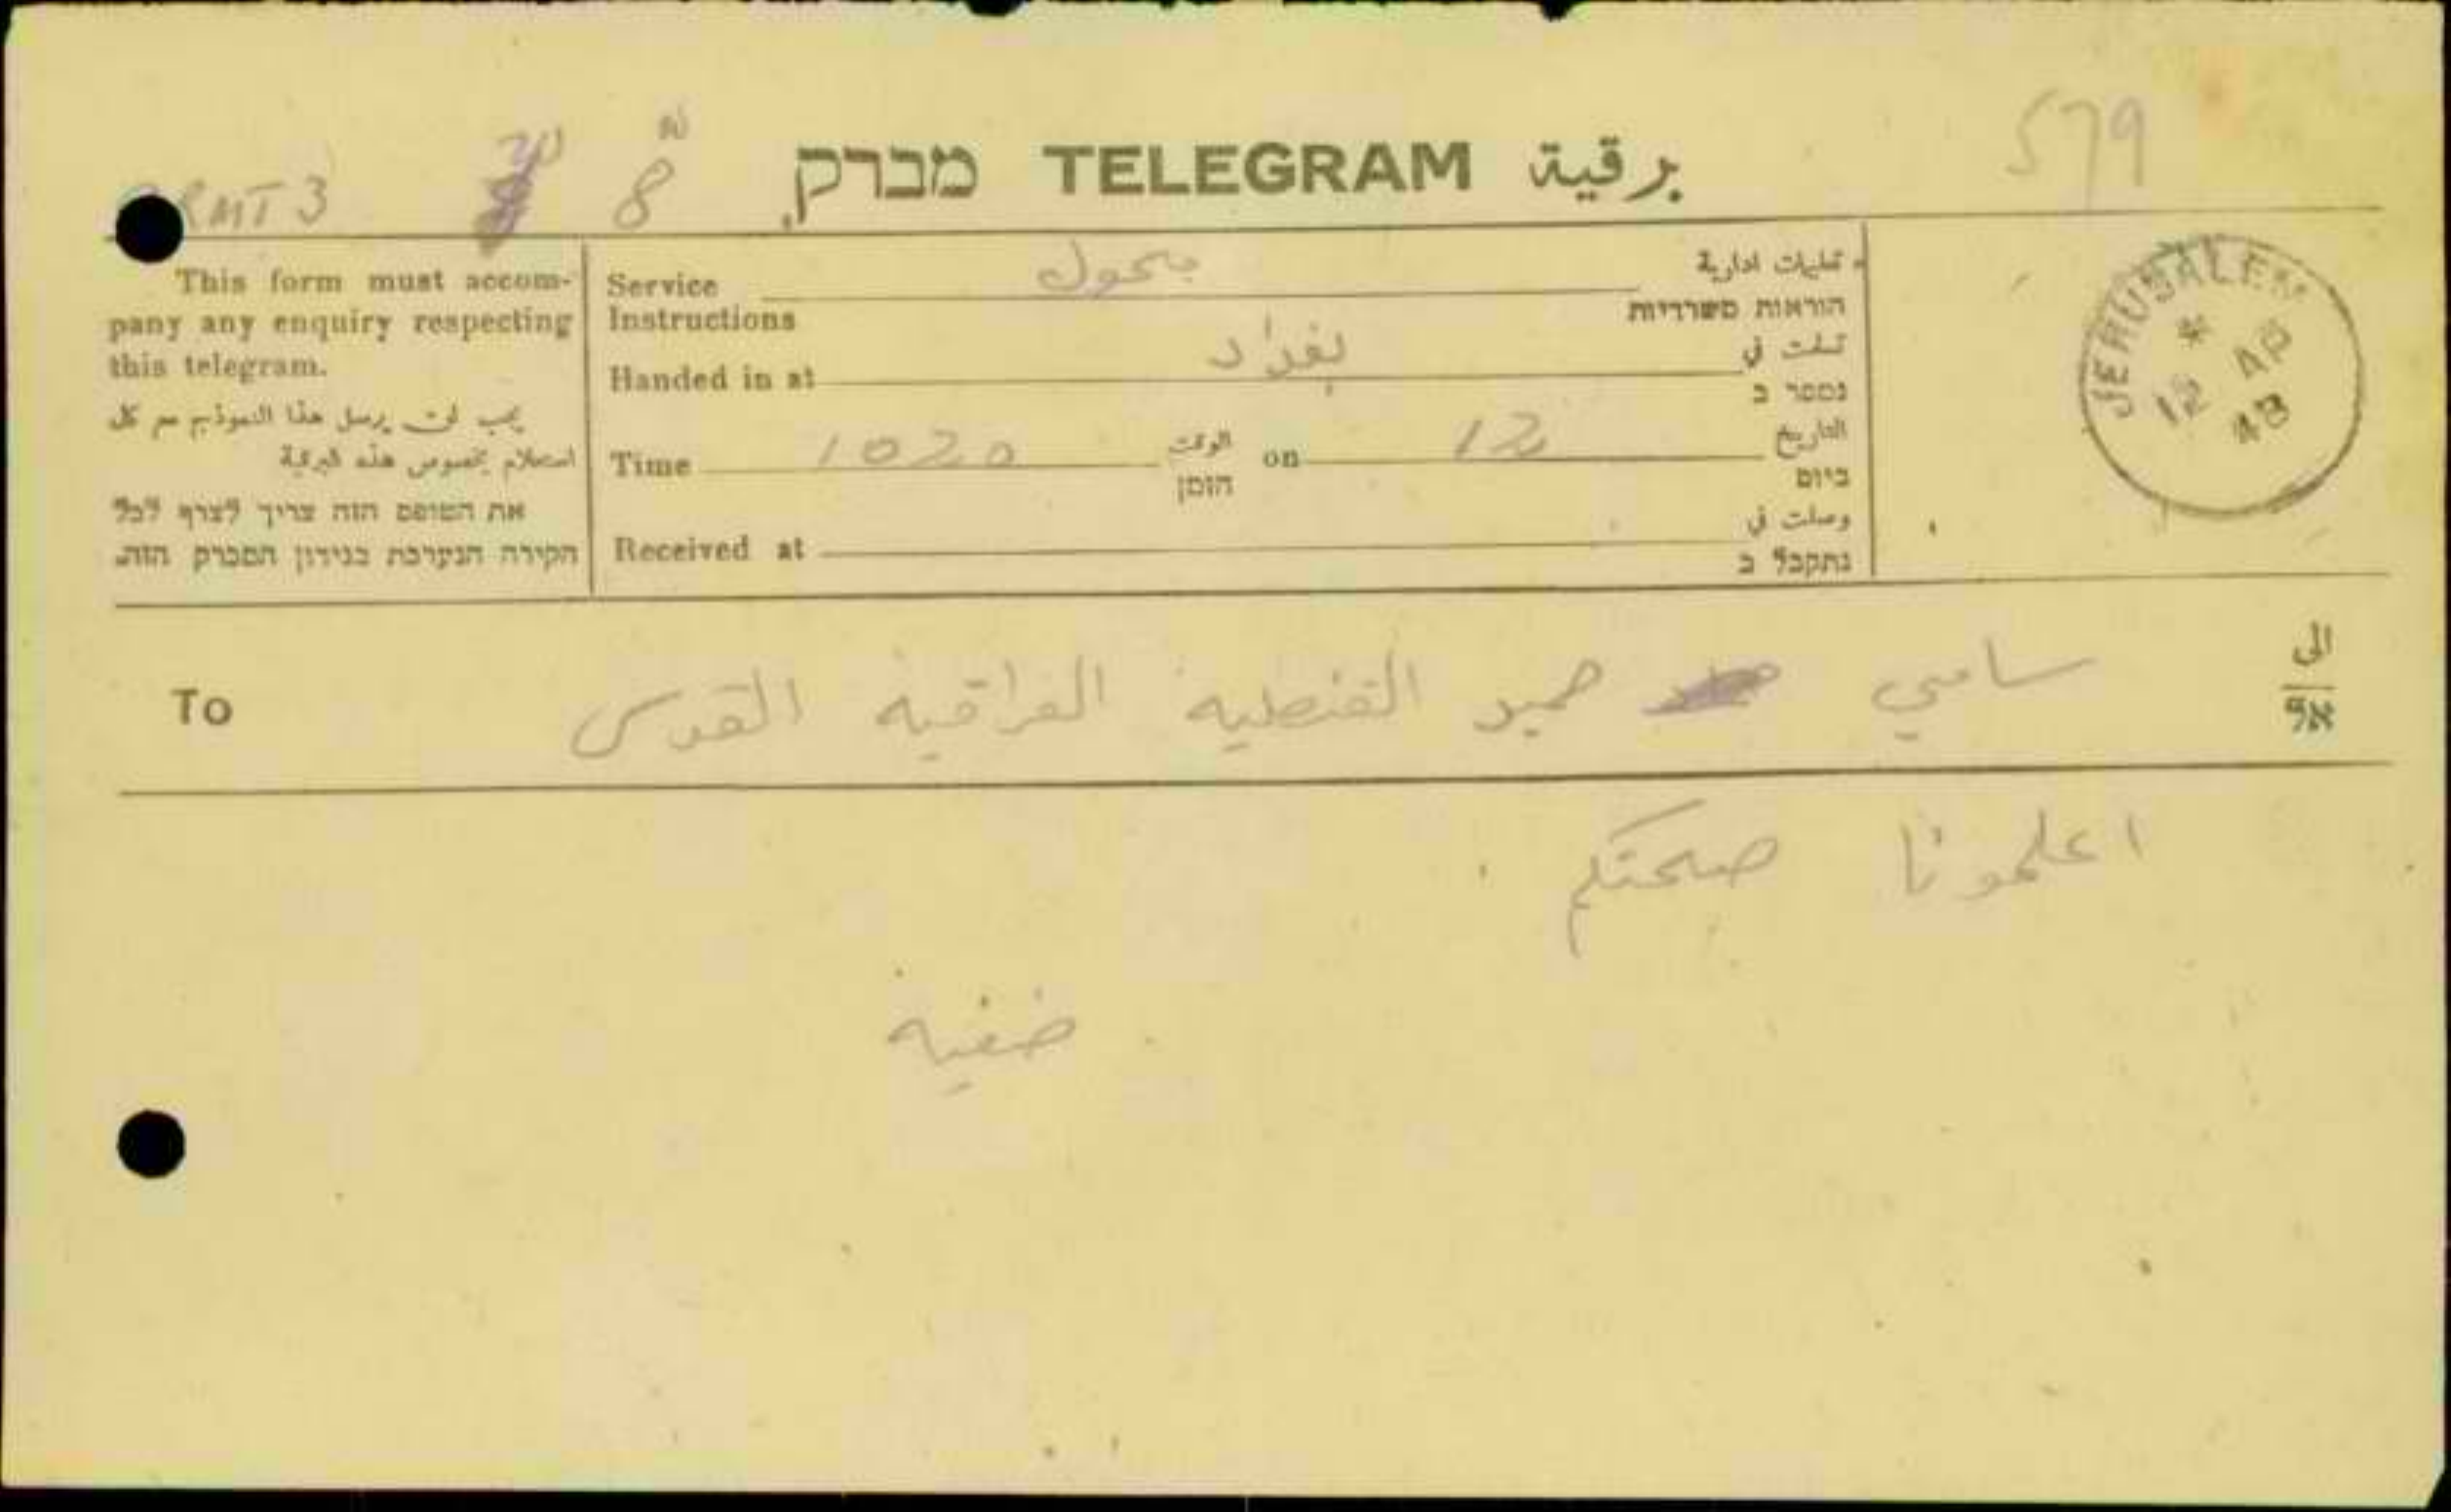 579
RMT 3 8
מברק. TELEGRAM برقية
This form must accom-
pany any enquiry respecting
this telegram.
يجب ان يرسل هذا النموذج مع كل
استعلام بخصوص هذه البرقية
את הטופס הזה צריך לצרף לכל
חקירה הנערכת בנידון המברק הזה.
Service Instructions بحول تعليمات ادارية
הוראות משרדיות
Handed in at بغداد تسلمت في
נמסר ב
Time 1020 الوقت הזמן on 12 التاريخ
ביום
Received at وصلت في
נתקבל ב
JERUSALEM
* 12 AP
48
To الى
אל
سامي حميد القنصلية العراقية القدس
اعلمونا صحتكم